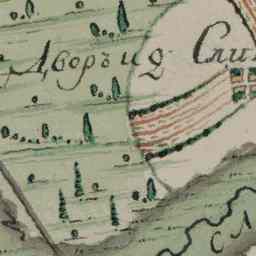 Дворъ ид Сли
сл